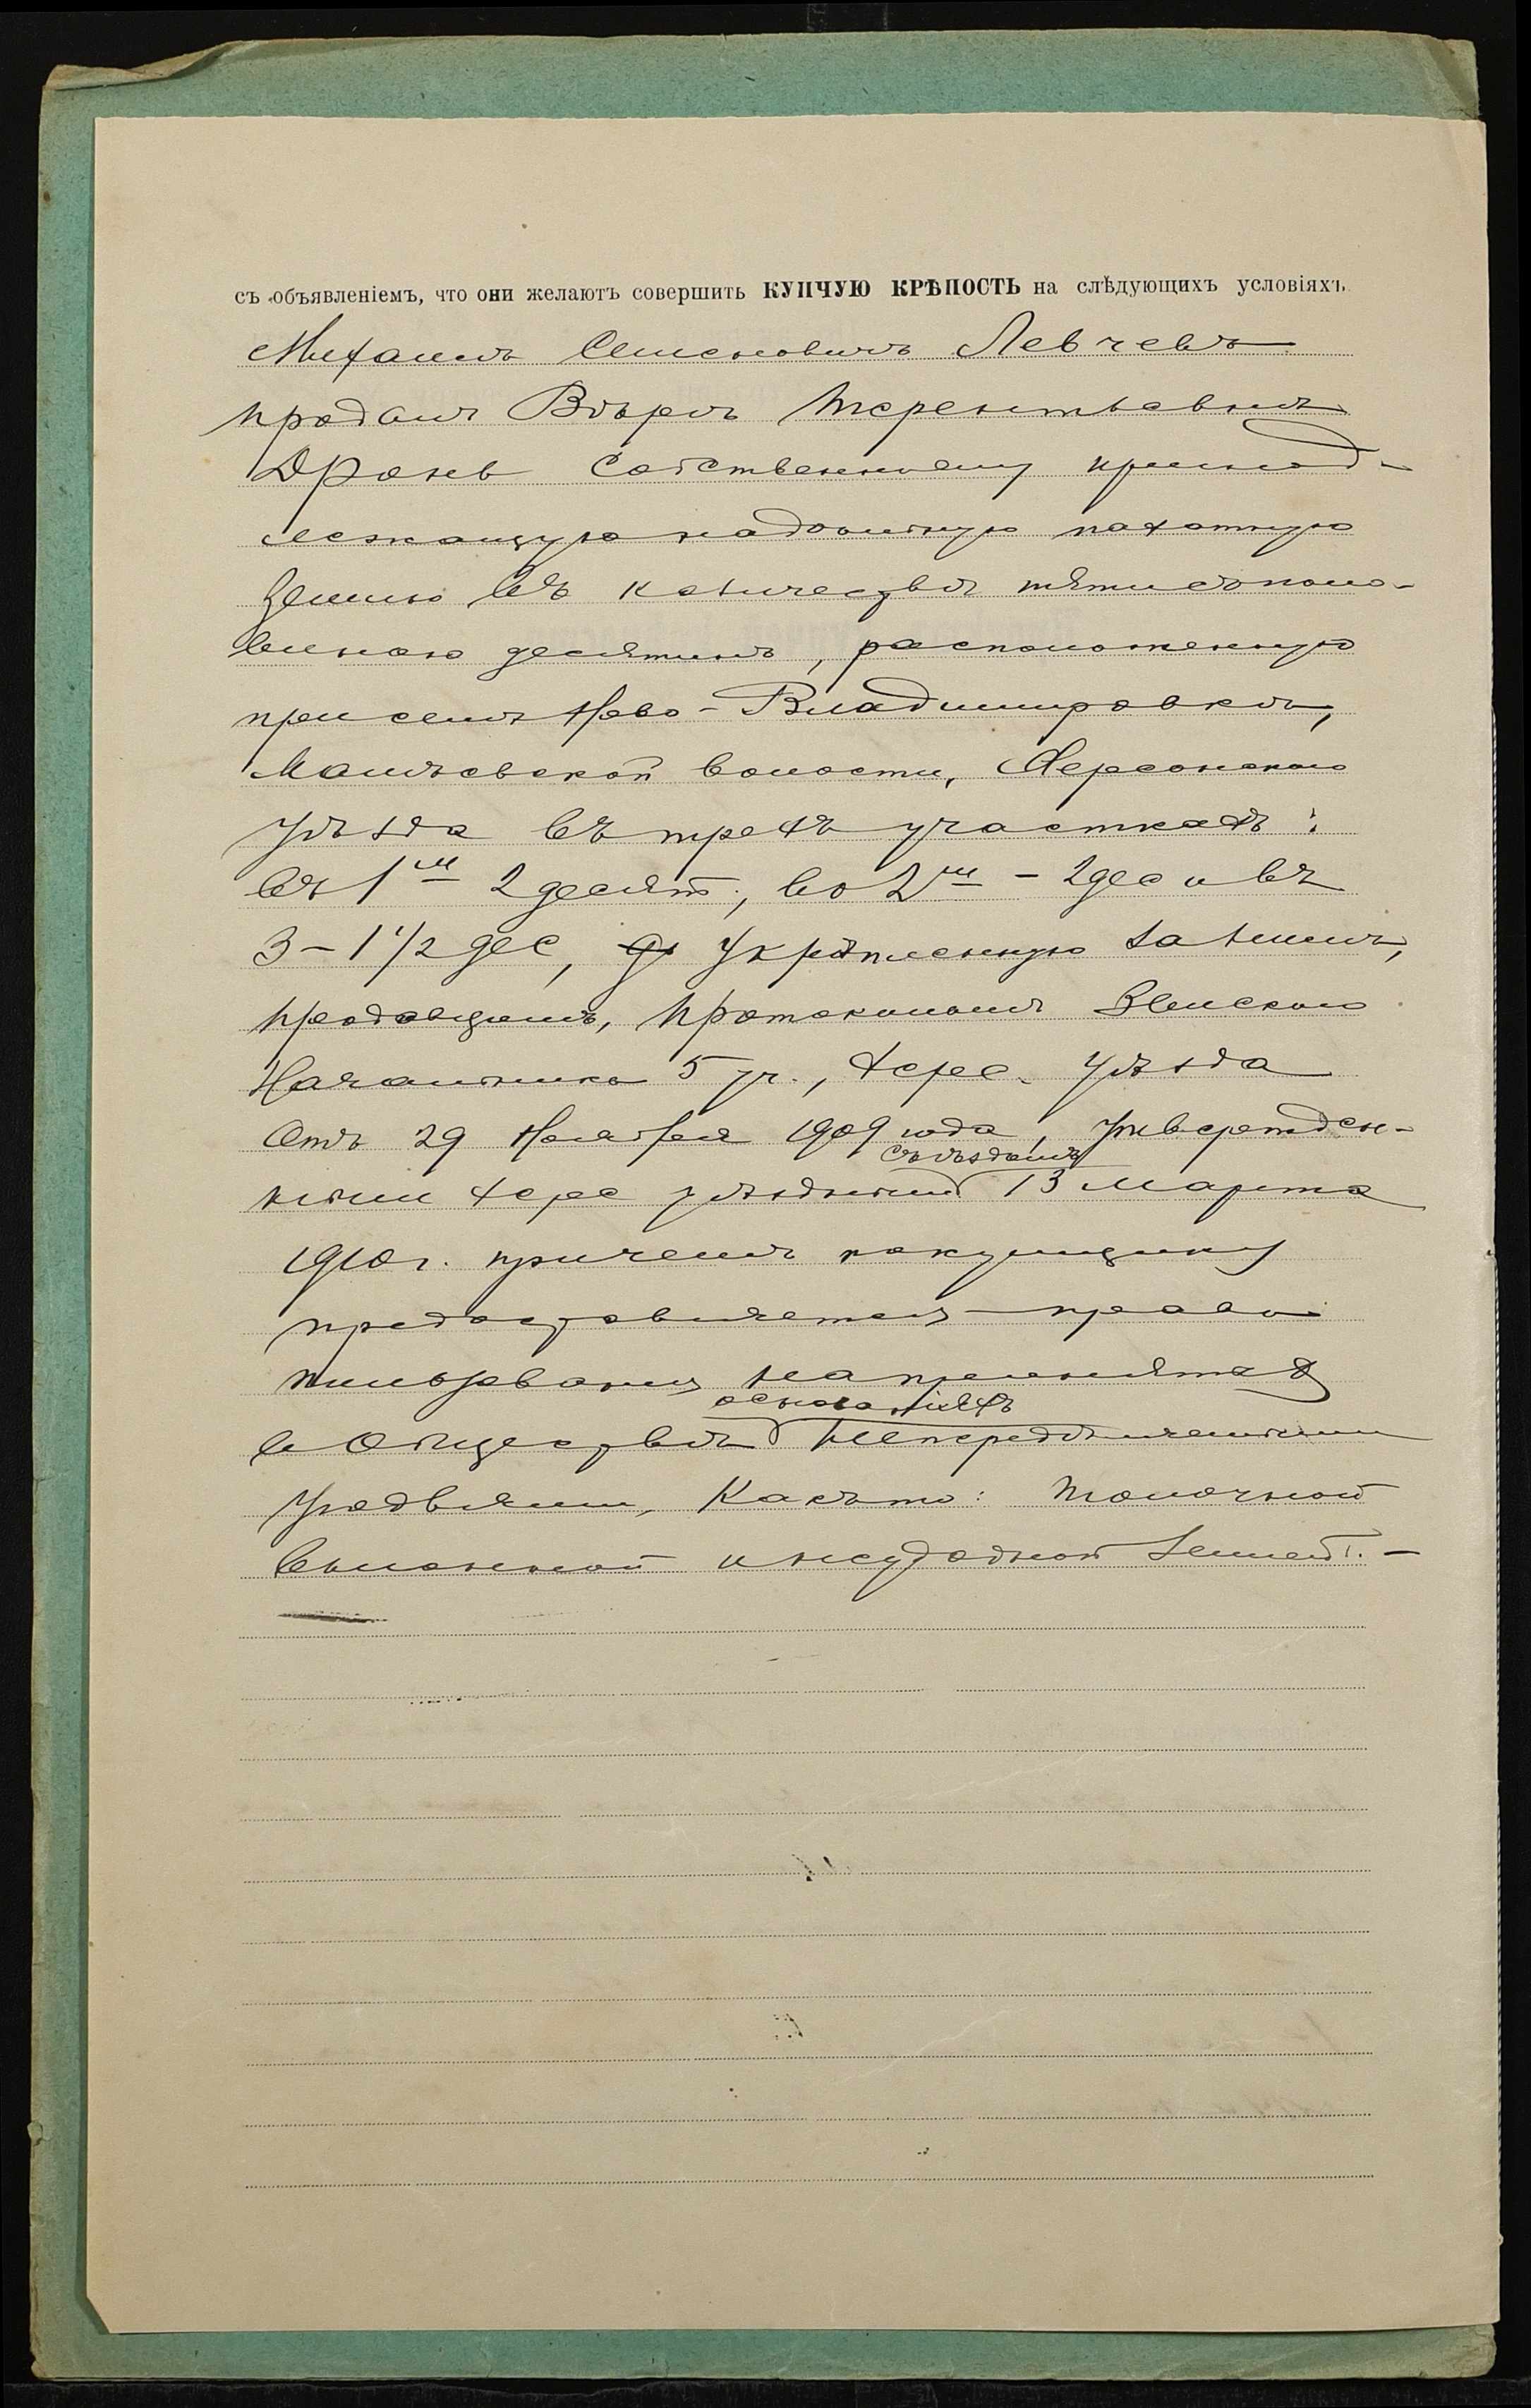 съ объявленіемъ, что они желаютъ совершить КУПЧУЮ КРѢПОСТЬ на слѣдующихъ условіяхъ
Михаилъ Семеновичъ Левчевъ
продалъ Вѣрѣ Терентьевнѣ
Дронь собственному принад-
лежащую надѣльную пахатную
землю въ количествѣ пяти съ поло-
виною десятинъ, расположенную
при селѣ Ново-Владимировкѣ,
Малѣевской волости, Херсонскаго
уѣзда въ трехъ участкахъ:
въ 1мъ 2 десят., во 2мъ - 2 дес и въ
3 - 1 1/2 дес, укрѣпленную за нимъ,
продавцемъ, протоколомъ Земскаго
Начальника 5 уч., Херс. уѣзда
отъ 29 Ноября 1909 года, утвержден-
съѣздомъ
нымъ Херс уѣзднымъ 13 Марта
1910 г. причемъ покупщику
предоставляется право
пользованія на принятыхъ
основаніяхъ
въ Обществѣ непередѣляемыми
угодьями, какъ то: толочной
выгонной и неудобной землей. -